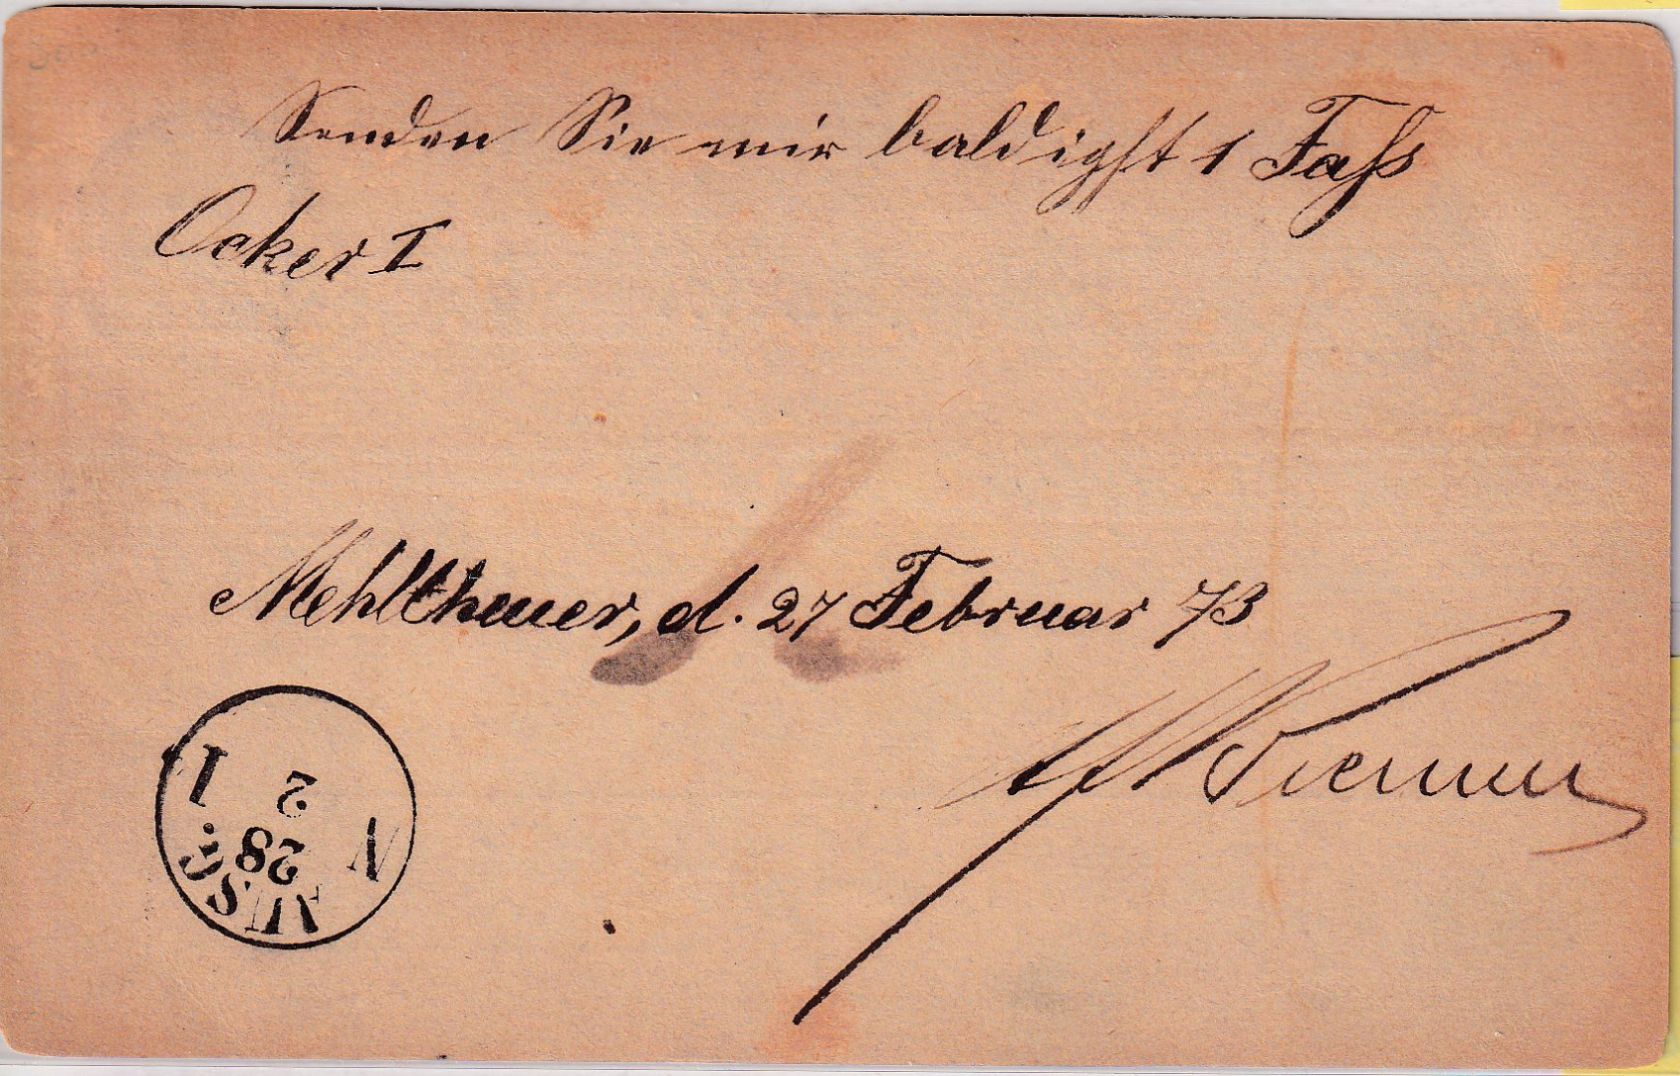 Senden Sie mir baldigst 1 Faß
Ocker I
Mehltheuer, d. 27 Februar 73
AUSG. I
28
2
N